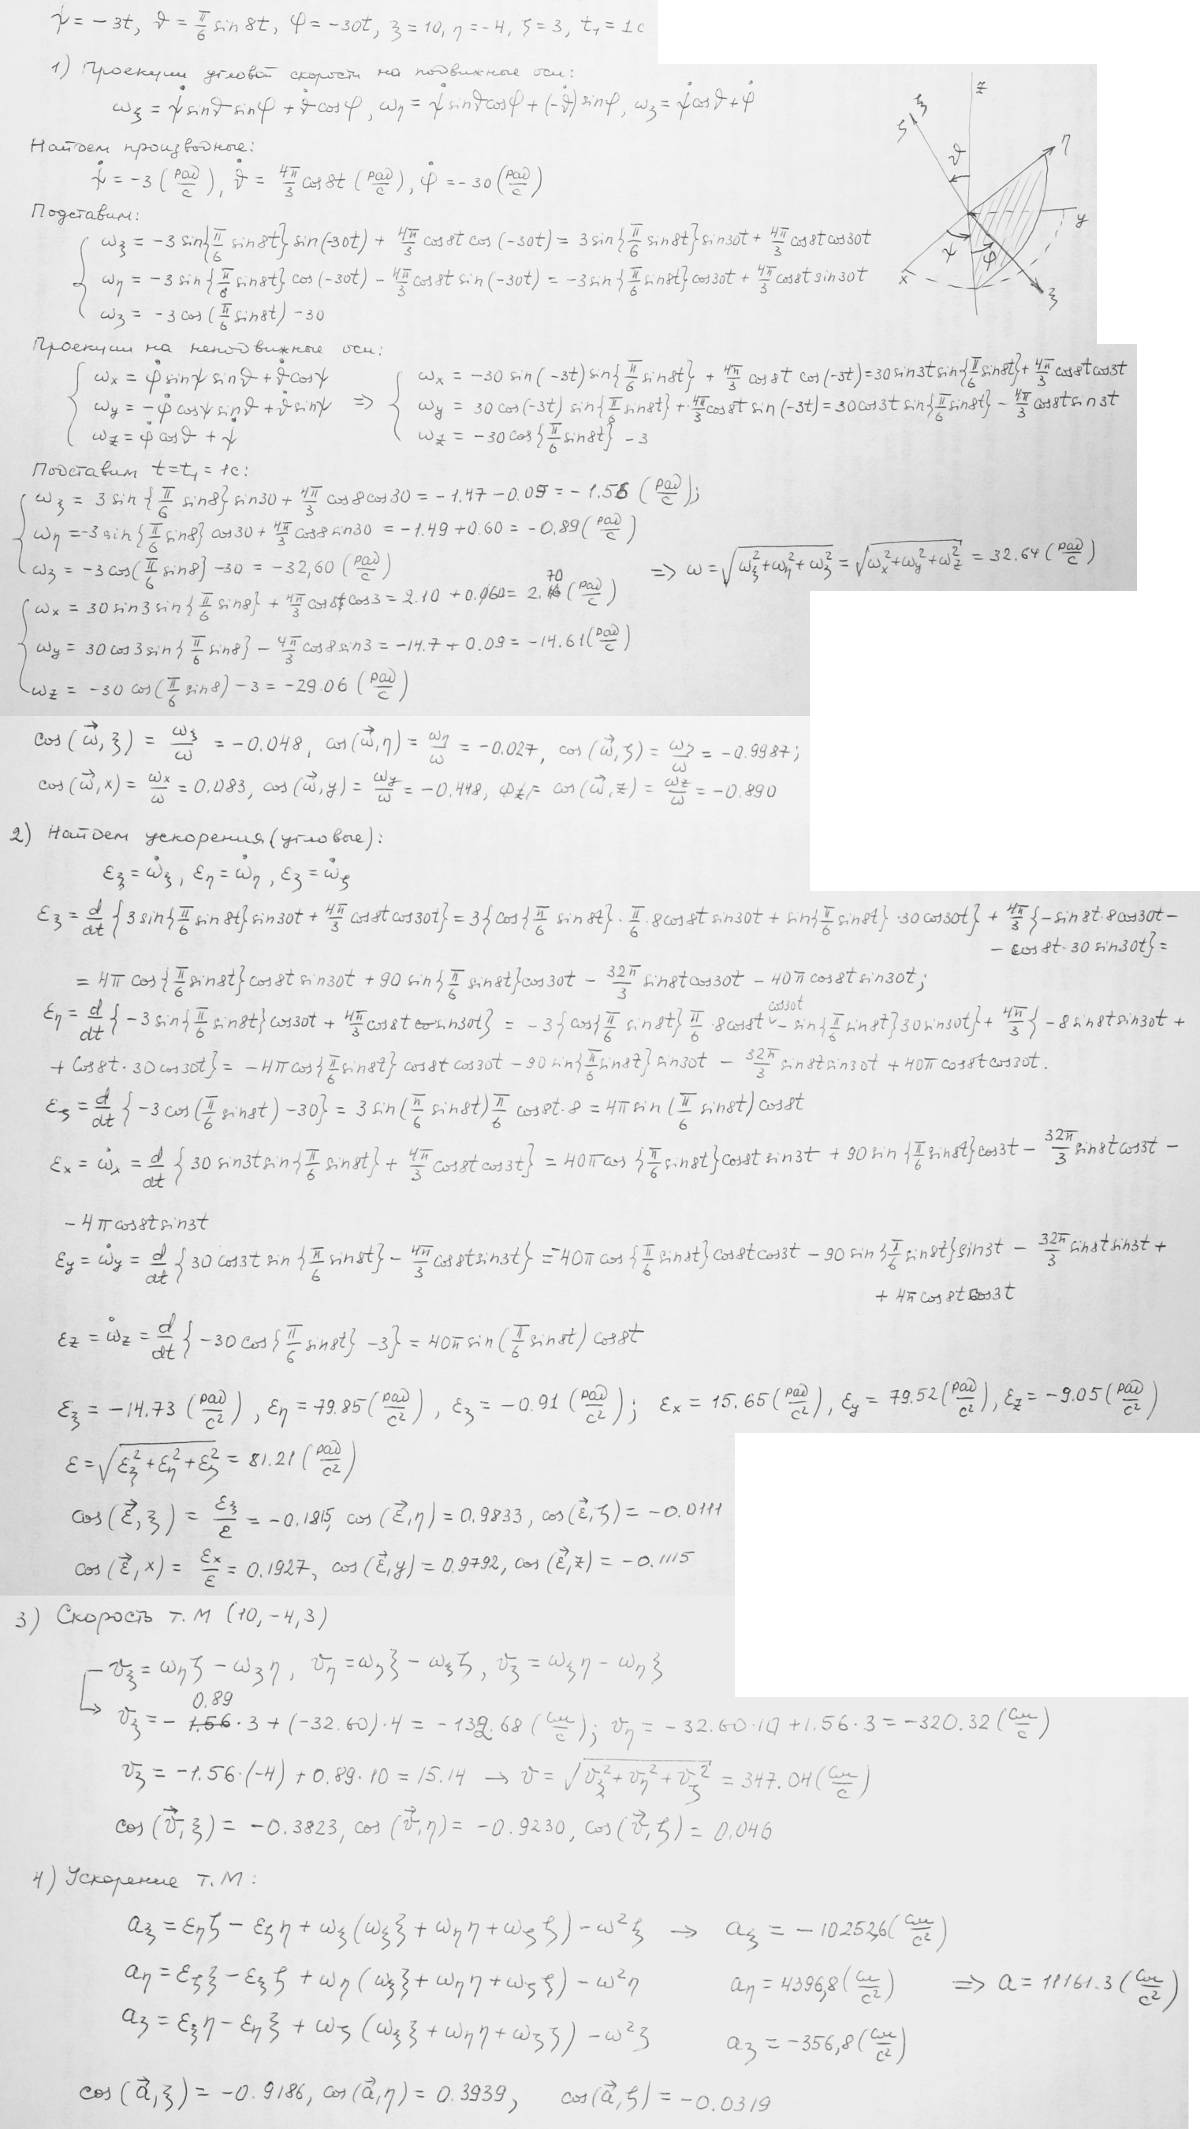 ψ = −3t, ϑ = π/6 sin8t, φ = −30t, ξ = 10, η = −4, ζ = 3, t₁ = 1c
1) Проекции угловой скорости на подвижные оси:
ωξ = ψ̇ sinϑ sinφ + ϑ̇ cosφ, ωη = ψ̇ sinϑ cosφ + (−ϑ̇) sinφ, ωζ = ψ̇ cosϑ + φ̇
Найдем производные:
ψ̇ = −3 (рад/с), ϑ̇ = 4π/3 cos8t (рад/с), φ̇ = −30 (рад/с)
Подставим:
ωξ = −3 sin{π/6 sin8t} sin(−30t) + 4π/3 cos8t cos(−30t) = 3 sin{π/6 sin8t} sin30t + 4π/3 cos8t cos30t
ωη = −3 sin{π/6 sin8t} cos(−30t) − 4π/3 cos8t sin(−30t) = −3 sin{π/6 sin8t} cos30t + 4π/3 cos8t sin30t
ωζ = −3 cos(π/6 sin8t) − 30
z
ξ
ζ
ϑ
η
y
x
ψ
φ
ξ
Проекции на неподвижные оси:
ωx = φ̇ sinψ sinϑ + ϑ̇ cosψ
ωy = −φ̇ cosψ sinϑ + ϑ̇ sinψ =>
ωz = φ̇ cosϑ + ψ̇
ωx = −30 sin(−3t) sin{π/6 sin8t} + 4π/3 cos8t cos(−3t) = 30 sin3t sin{π/6 sin8t} + 4π/3 cos8t cos3t
ωy = 30 cos(−3t) sin{π/6 sin8t} + 4π/3 cos8t sin(−3t) = 30 cos3t sin{π/6 sin8t} − 4π/3 cos8t sin3t
ωz = −30 cos{π/6 sin8t} − 3
Подставим t = t₁ = 1c:
ωξ = 3 sin{π/6 sin8} sin30 + 4π/3 cos8 cos30 = −1.47 − 0.09 = −1.56 (рад/с);
ωη = −3 sin{π/6 sin8} cos30 + 4π/3 cos8 sin30 = −1.49 + 0.60 = −0.89 (рад/с)
ωζ = −3 cos(π/6 sin8) − 30 = −32,60 (рад/с)
=> ω = √(ωξ² + ωη² + ωζ²) = √(ωx² + ωy² + ωz²) = 32.64 (рад/с)
ωx = 30 sin3 sin{π/6 sin8} + 4π/3 cos8 cos3 = 2.10 + 0.60 = 2.70 (рад/с)
ωy = 30 cos3 sin{π/6 sin8} − 4π/3 cos8 sin3 = −14.7 + 0.09 = −14.61 (рад/с)
ωz = −30 cos(π/6 sin8) − 3 = −29.06 (рад/с)
cos(ω⃗, ξ) = ωξ/ω = −0.048, cos(ω⃗, η) = ωη/ω = −0.027, cos(ω⃗, ζ) = ωζ/ω = −0.9987;
cos(ω⃗, x) = ωx/ω = 0.083, cos(ω⃗, y) = ωy/ω = −0.448, cos(ω⃗, z) = ωz/ω = −0.890
2) Найдем ускорения (угловые):
εξ = ω̇ξ, εη = ω̇η, εζ = ω̇ζ
εξ = d/dt {3 sin{π/6 sin8t} sin30t + 4π/3 cos8t cos30t} = 3{cos{π/6 sin8t} · π/6 · 8cos8t sin30t + sin{π/6 sin8t} · 30 cos30t} + 4π/3 {−sin8t · 8cos30t −
− cos8t · 30 sin30t} =
= 4π cos{π/6 sin8t} cos8t sin30t + 90 sin{π/6 sin8t} cos30t − 32π/3 sin8t cos30t − 40π cos8t sin30t;
εη = d/dt {−3 sin{π/6 sin8t} cos30t + 4π/3 cos8t sin30t} = −3{cos{π/6 sin8t} π/6 · 8cos8t cos30t − sin{π/6 sin8t} 30 sin30t} + 4π/3 {−8 sin8t sin30t +
+ cos8t · 30 cos30t} = −4π cos{π/6 sin8t} cos8t cos30t − 90 sin{π/6 sin8t} sin30t − 32π/3 sin8t sin30t + 40π cos8t cos30t.
εζ = d/dt {−3 cos(π/6 sin8t) − 30} = 3 sin(π/6 sin8t) π/6 cos8t · 8 = 4π sin(π/6 sin8t) cos8t
εx = ω̇x = d/dt {30 sin3t sin{π/6 sin8t} + 4π/3 cos8t cos3t} = 40π cos{π/6 sin8t} cos8t sin3t + 90 sin{π/6 sin8t} cos3t − 32π/3 sin8t cos3t −
− 4π cos8t sin3t
εy = ω̇y = d/dt {30 cos3t sin{π/6 sin8t} − 4π/3 cos8t sin3t} = −40π cos{π/6 sin8t} cos8t cos3t − 90 sin{π/6 sin8t} sin3t − 32π/3 sin8t sin3t +
+ 4π cos8t cos3t
εz = ω̇z = d/dt {−30 cos{π/6 sin8t} − 3} = 40π sin(π/6 sin8t) cos8t
εξ = −14.73 (рад/с²), εη = 79.85 (рад/с²), εζ = −0.91 (рад/с²); εx = 15.65 (рад/с²), εy = 79.52 (рад/с²), εz = −9.05 (рад/с²)
ε = √(εξ² + εη² + εζ²) = 81.21 (рад/с²)
cos(ε⃗, ξ) = εξ/ε = −0.1815, cos(ε⃗, η) = 0.9833, cos(ε⃗, ζ) = −0.0111
cos(ε⃗, x) = εx/ε = 0.1927, cos(ε⃗, y) = 0.9792, cos(ε⃗, z) = −0.1115
3) Скорость т. М (10, −4, 3)
vξ = ωηζ − ωζη, vη = ωζξ − ωξζ, vζ = ωξη − ωηξ
vξ = −0.89 · 3 + (−32.60) · 4 = −132.68 (см/с); vη = −32.60 · 10 + 1.56 · 3 = −320.32 (см/с)
vζ = −1.56 · (−4) + 0.89 · 10 = 15.14 → v = √(vξ² + vη² + vζ²) = 347.04 (см/с)
cos(v⃗, ξ) = −0.3823, cos(v⃗, η) = −0.9230, cos(v⃗, ζ) = 0.046
4) Ускорение т. М:
aξ = εηζ − εζη + ωξ(ωξξ + ωηη + ωζζ) − ω²ξ → aξ = −10252,6 (см/с²)
aη = εζξ − εξζ + ωη(ωξξ + ωηη + ωζζ) − ω²η aη = 4396,8 (см/с²) => a = 11161.3 (см/с²)
aζ = εξη − εηξ + ωζ(ωξξ + ωηη + ωζζ) − ω²ζ aζ = −356,8 (см/с²)
cos(a⃗, ξ) = −0.9186, cos(a⃗, η) = 0.3939, cos(a⃗, ζ) = −0.0319